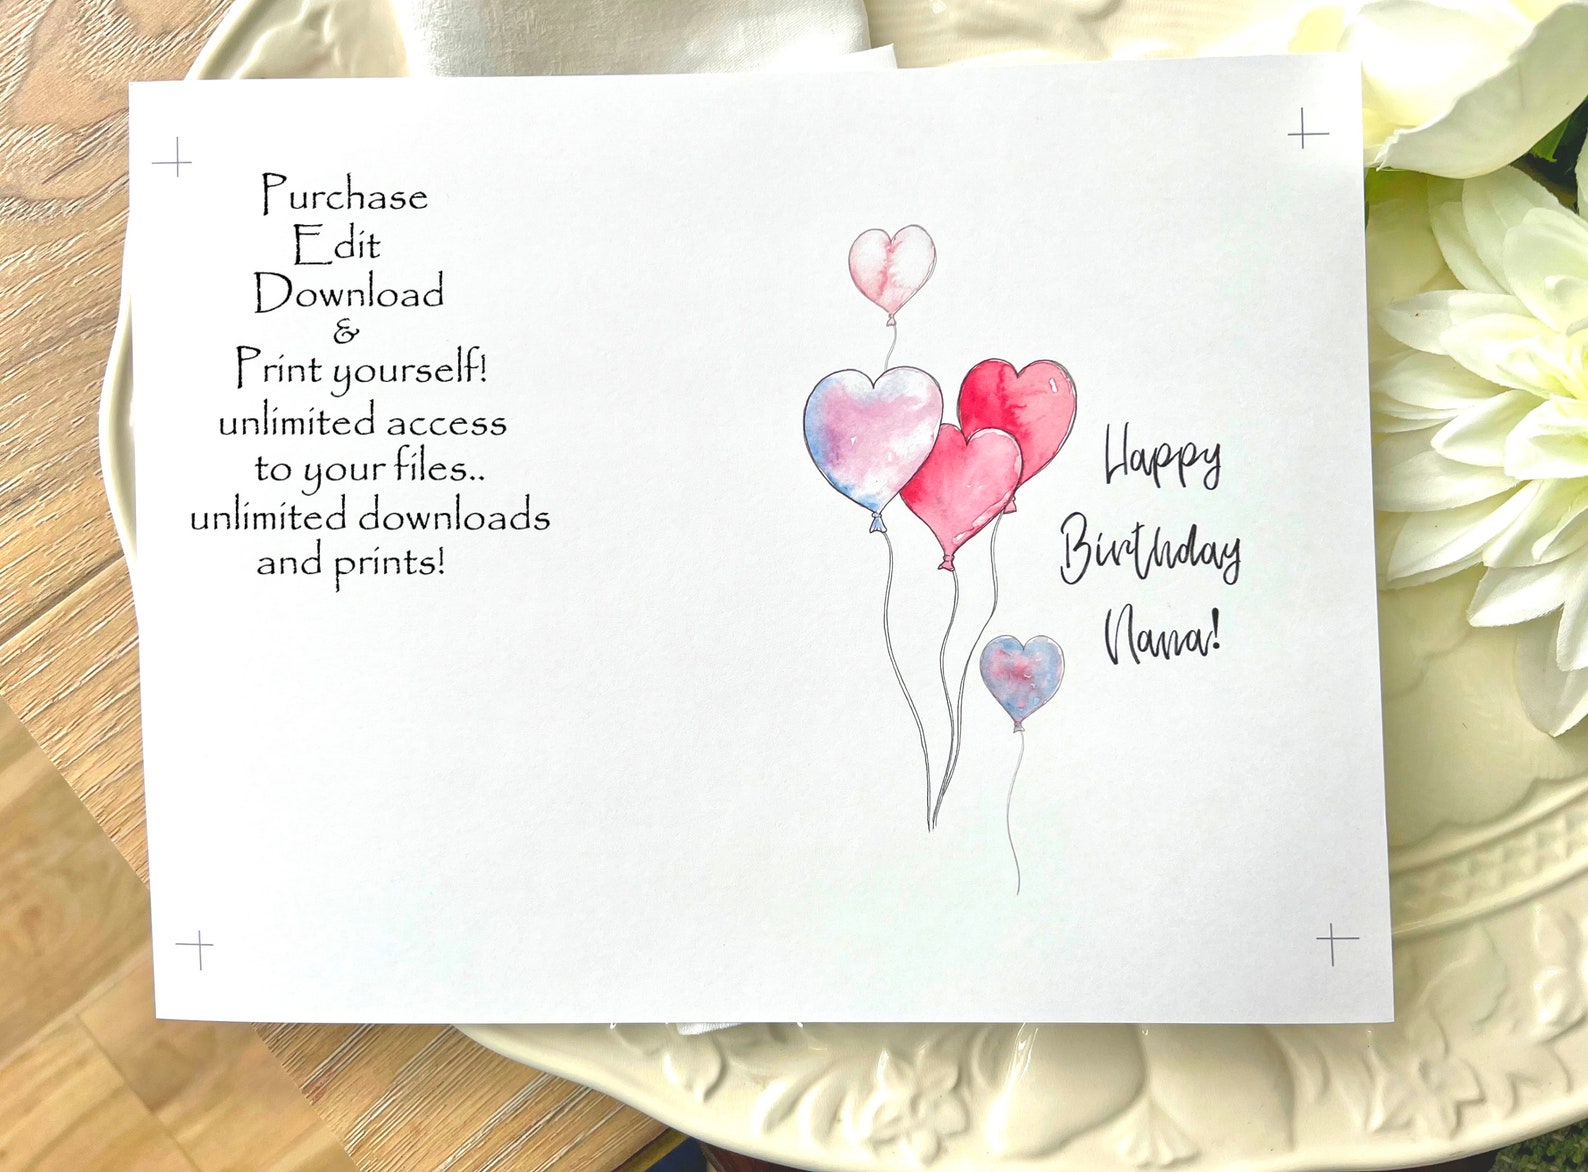 Purchase
Edit
Download
&
Print yourself!
unlimited access
to your files..
unlimited downloads
and prints!
Happy
Birthday
Nana!